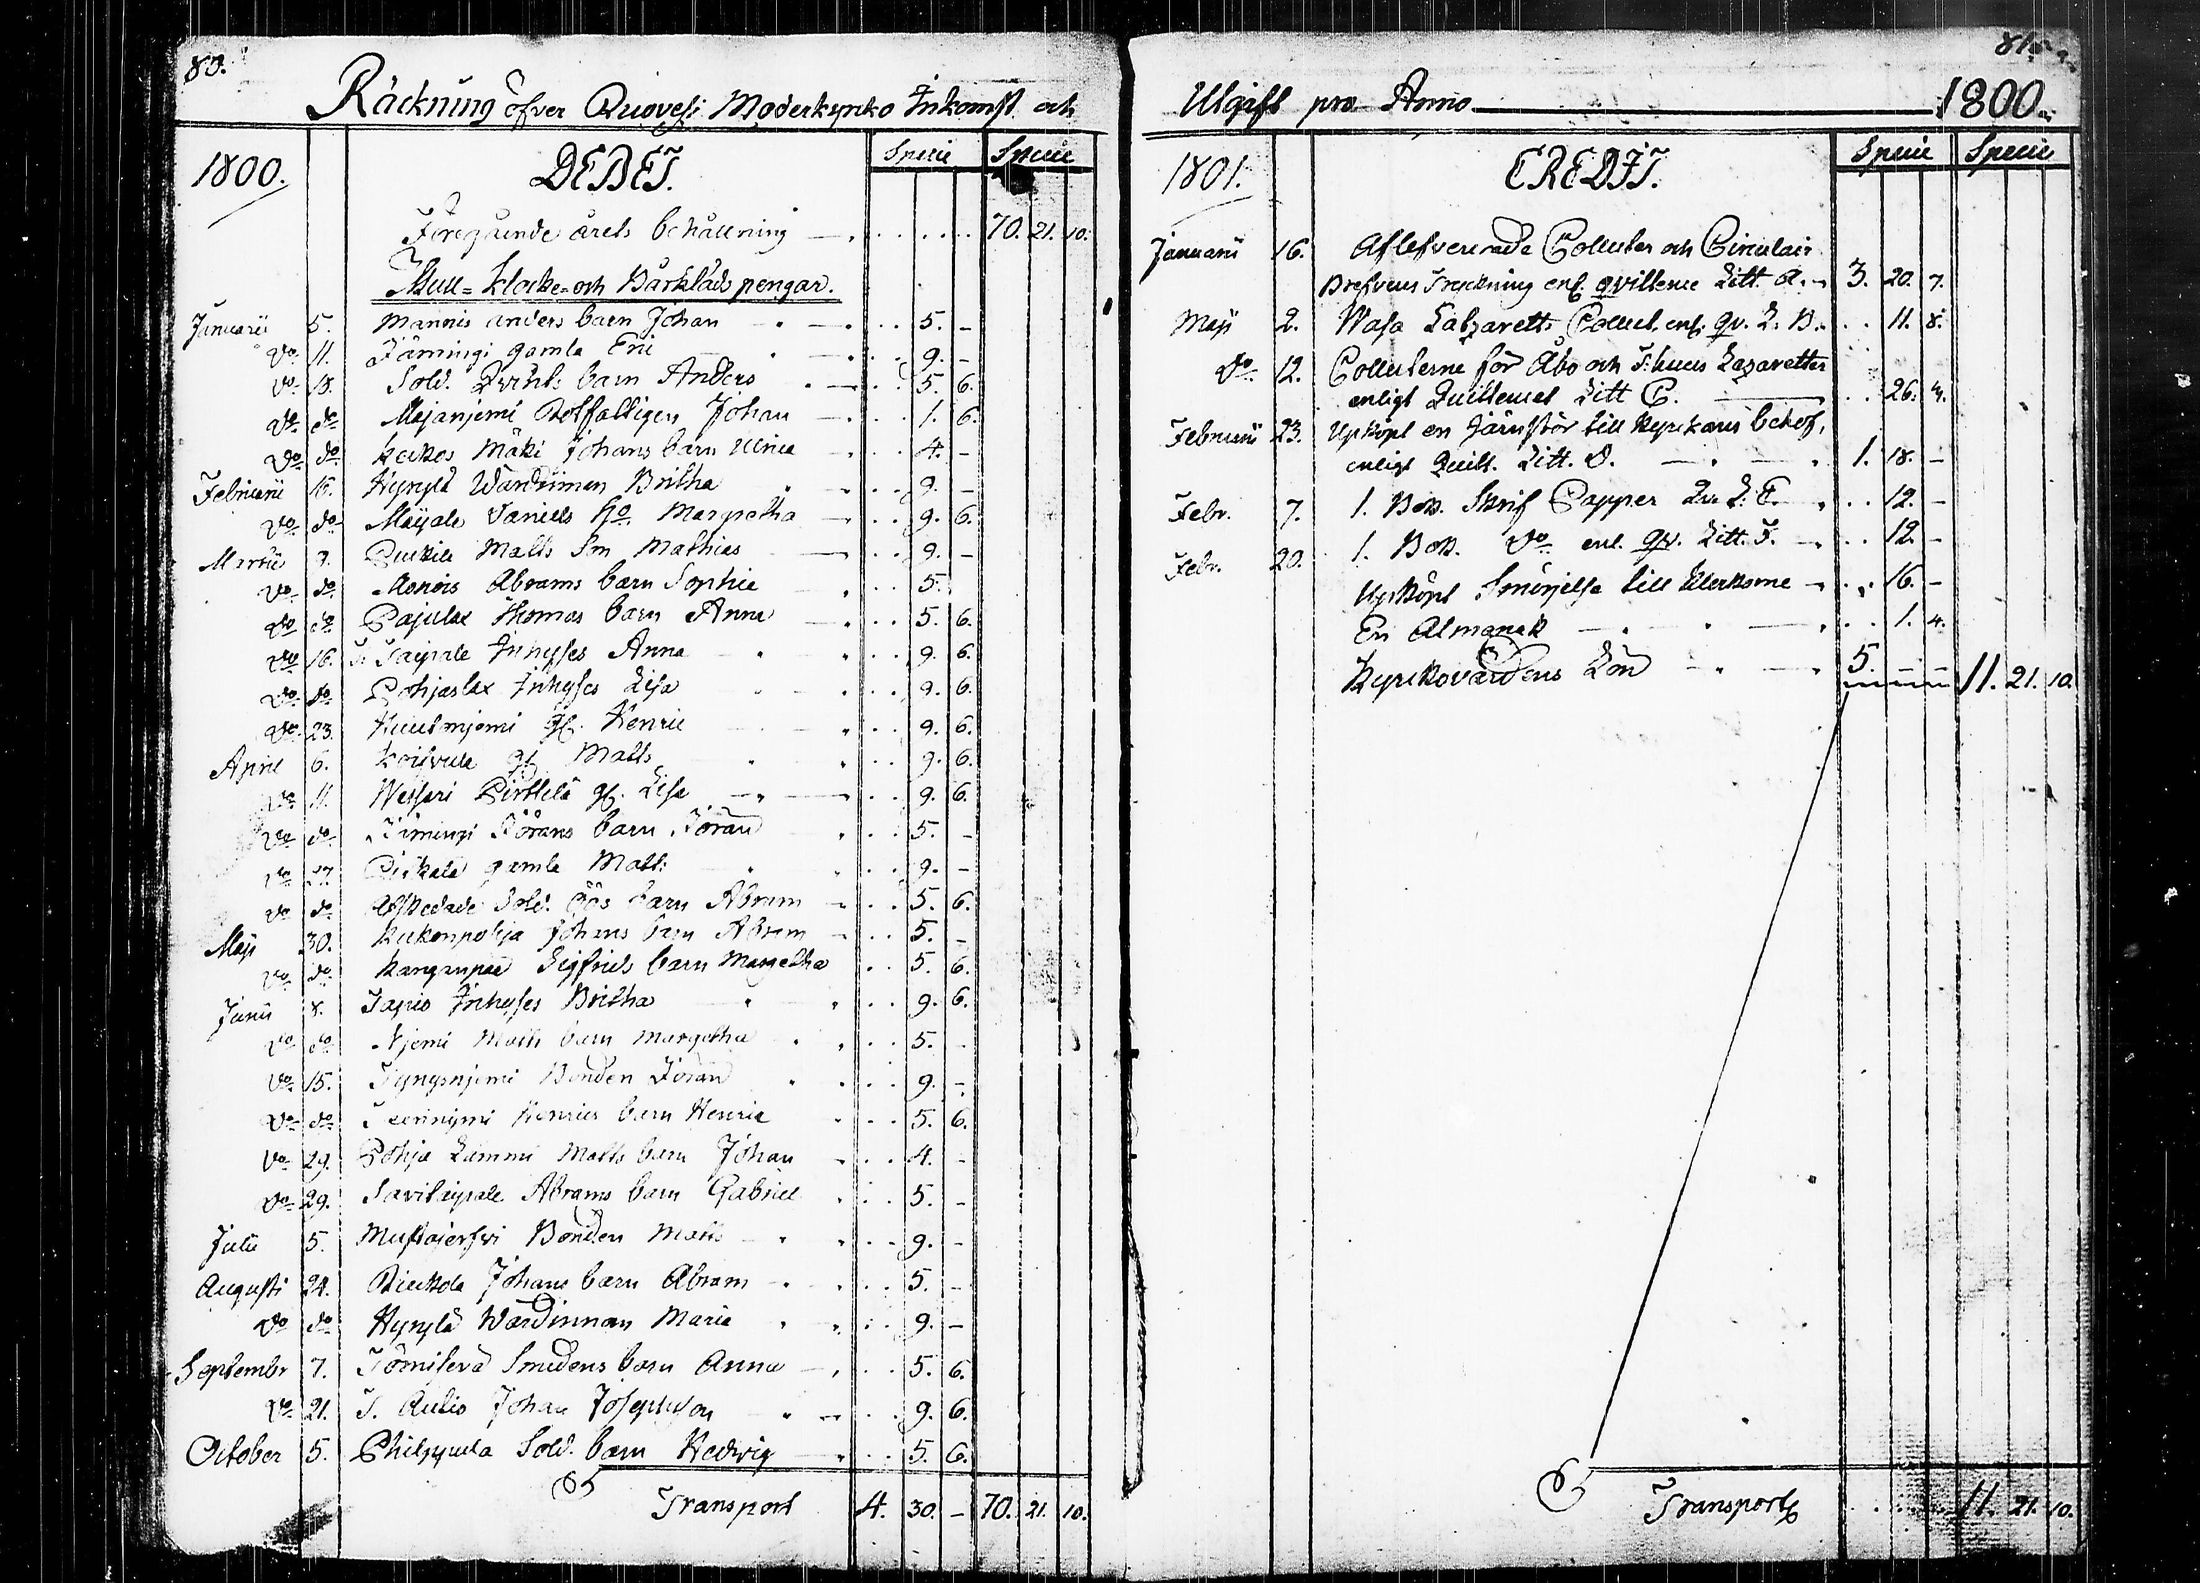 80.
Räckning öfver Quovesi Moderkyrko Inkomst och
1800. DEBET. Specie Specie
Föregående årets behållning 70. 21. 10.
Mull= Klocke= och Bårkläds pengar.
Januarii 5. Mannis Anders barn Johan 5. –
do 11. Jämingi gamla Eric 9. –
do 18. Sold. Qvists barn Anders 5. 6.
do do Majanjemi Rotfattigen Johan 1. 6.
do do Keckos Mäki Johans barn Ulrica 4. –
Februarii 16. Hyrylä Värdinnan Britha 9. –
do do Maijala Daniels ho Margretha 9. 6.
Martii 9. Matts Son Mathias 9. –
do do Abrams barn Sophia 5.
do do Pajulax Thomas barn Anna 5. 6.
do 16. T. Taipale Inhyses Anna 9. 6.
do do Pohjaslax Inhyses Lisa 9. 6.
do 23. gl. Henric 9. 6.
April 6. Koifvula gl. Matts 9. 6.
do 11. Wessari Pirttilä gl. Lisa 9. 6.
do do Jämingi Jörans barn Jöran 5. –
do 27. gamla Matts 9. –
do do Afskedade Sold. barn Abram 5. 6.
Maji 30. Kukonpohja Johans barn Abram 5. –
do do Kanganpää Sigfrids barn Margetha 5. 6.
Junii 8. Tapio Inhyses Britha 9. 6.
do do Njemi Matts barn Margetha 5. –
do 15. Tyngsnjemi Bonden Jöran 9. –
do do Henrics barn Henric 5. 6.
do 29. Pohja Lammi Matts barn Johan 4. –
do 29. Savitaipale Abrams barn Gabriel 5. –
Julii 5. Mustajerfvi Bonden Matts 9. –
Augusti 24. Johans barn Abram 5. –
do do Hyrylä Värdinnan Maria 9. –
September 7. Tömiserä Smedens barn Anna 5. 6.
do 21. T. Autio Johan Josephson 9. 6.
October 5. Philppula Sold. barn Hedwig 5. 6.
Transport 4. 30. – 70. 21. 10.
81.
Utgift pro Anno 1800.
1801. CREDIT. Specie Specie
Januarii 16. Aflefvererade Collecter och Circulair
Brefvens Tryckning enl. qvittence Litt. A. 3. 20. 7.
Maji 2. Wasa Latzaretts Collect. enl. qv. L. B. 11. 8.
do 12. Collecterne för Åbo och T:huus Lazaretter
enligt Quittencet Litt C. 26. 4.
Februarii 23. Upköpt en Järnstör till Kyrkans behof,
enligt Quitt. Litt. D. 1. 18. –
Febr. 7. 1. Bok Skrif Papper Qv. L. E. 12. –
Febr. 20. 1. Bok do enl. qv. Litt. F. 12. –
Upköpt Smörjelse till Klockorne 16. –
En Almanak 1. 4.
Kyrkovärdens Lön 5. – – 11. 21. 10.
Transport 11. 21. 10.